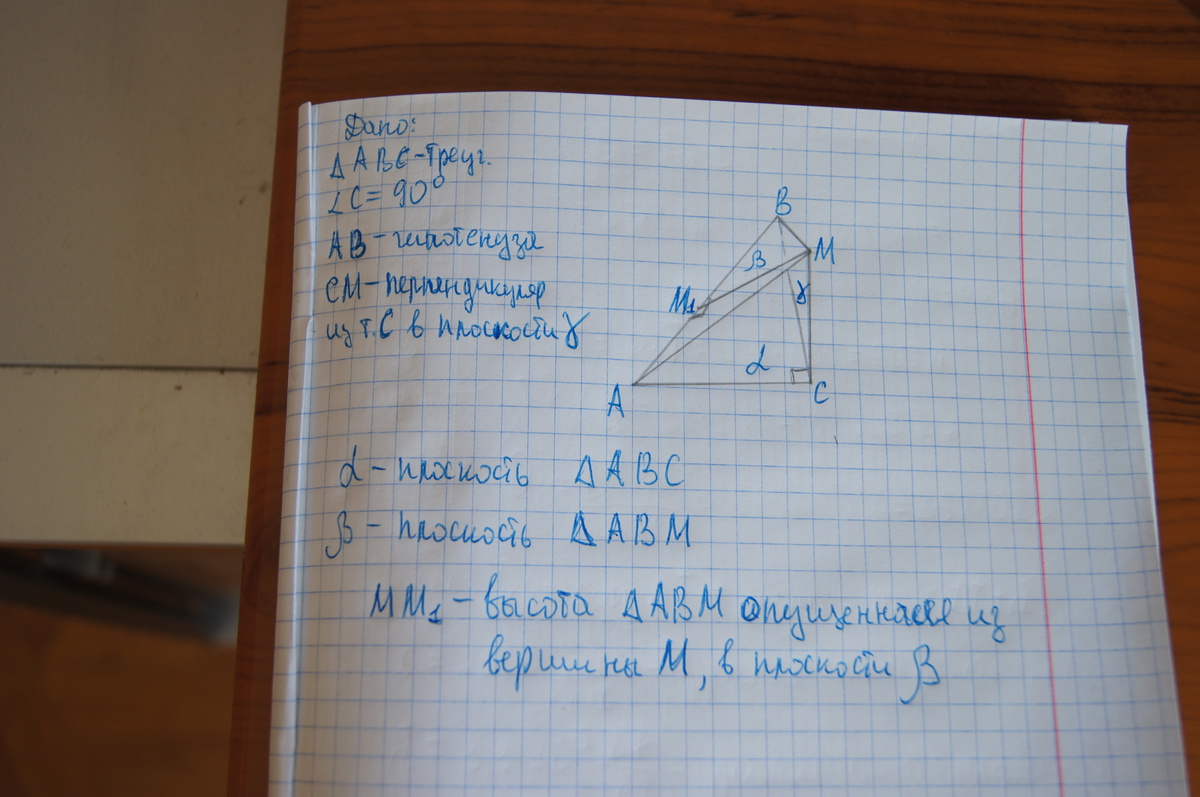 Дано:
Δ ABC - треуг.
∠C = 90°
AB - гипотенуза
CM - перпендикуляр
из т. C в плоскости γ
B
M
β
M₁
γ
α
A
C
α - плоскость Δ ABC
β - плоскость Δ ABM
MM₁ - высота Δ ABM опущенная из
вершины M, в плоскости β